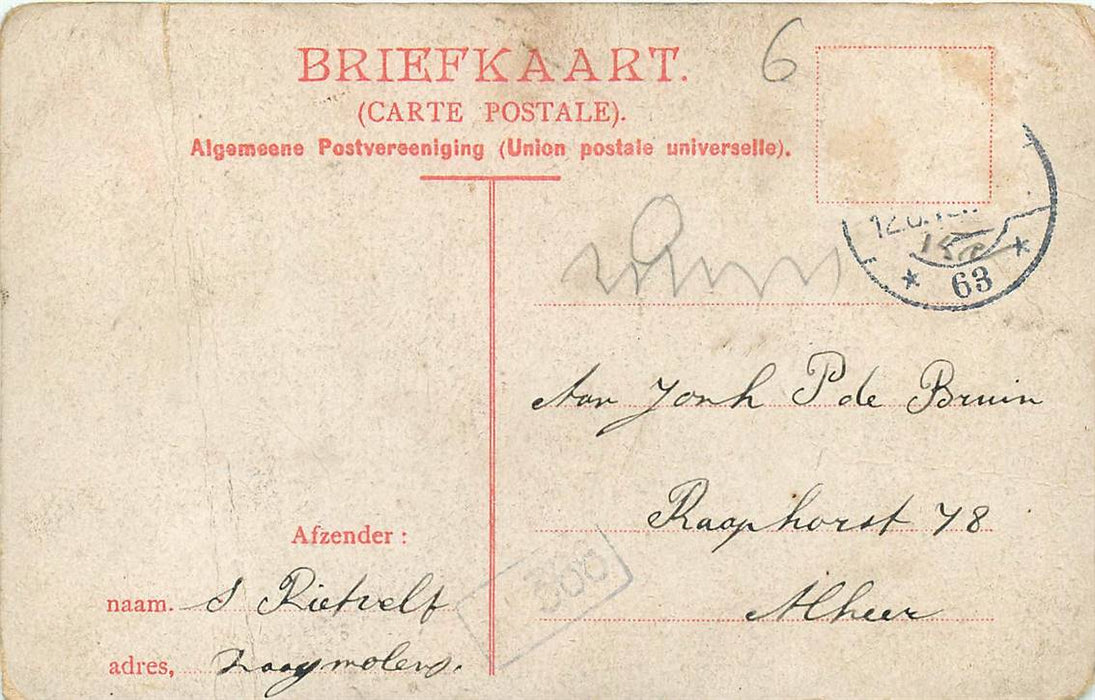 BRIEFKAART.
(CARTE POSTALE).
Algemeene Postvereeniging (Union postale universelle).
6
63
Aan Jonh P de Bruin
Raaphorst 78
Alheer
300
Afzender :
naam. S Rietvelt
adres,